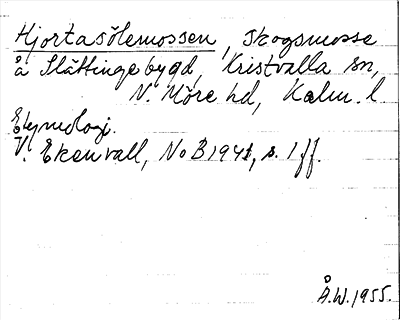 Hjortasölemossen, Skogsmosse
å Slättingebygd, Kristvalla sn,
N. Möre hd, Kalm. l.
Etymologi.
V. Ekenvall, NoB 1941, s. 1 ff.
Å.W. 1955.